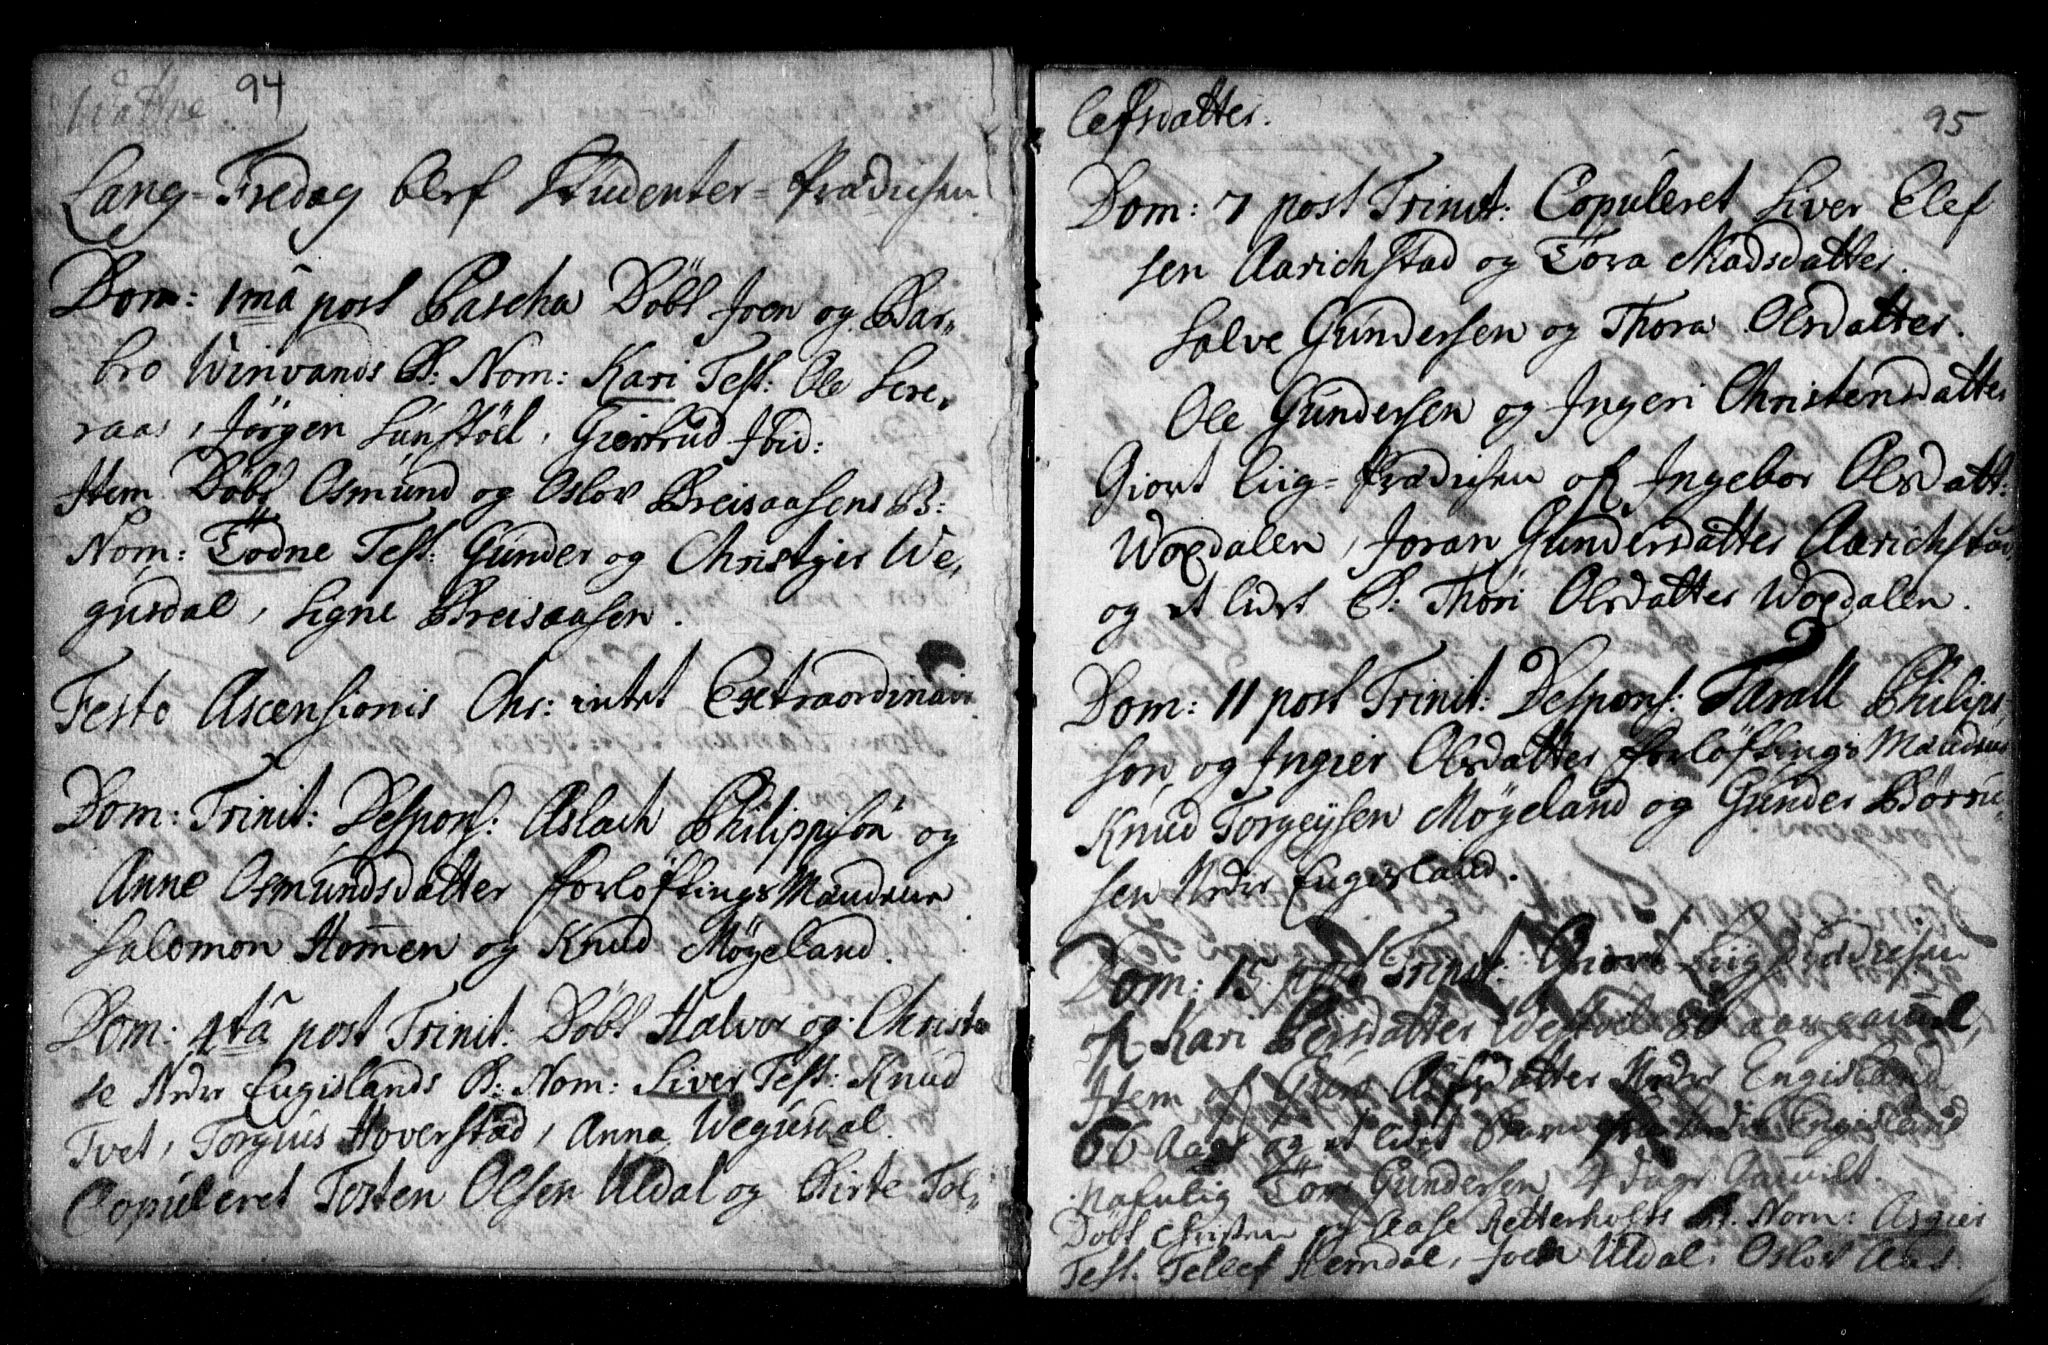 Wattne 94
Lang-Fredag blef Studenter-Prædichen
Dom: 1mâ post Pascha Döbt Joen og Bar-
bro Winvands B: Nom: Kari Test: Ole Sere-
raas, Jørgen Sunstöel, Giertrud Ibid:
Item Döbt Osmund og Oslov Breisaasens B:
Nom: Tödne Test: Gunder og Christjer We-
gusdal, Signe Breisaasen.
Festo Ascensionis Chr: intet Extraordinair
Dom: Trinit: Despons: Aslach Philippsön og
Anne Osmundsdatter forløftings Mændene
Salomon Hommen og Knud Møgeland.
Dom: 4tâ post Trinit: Döbt Halvor og Christe
se Nedre Engislands B: Nom: Siver Test: Knud
Tvet, Torgius Hoverstad, Anna Wegusdal.
Copuleret Tosten Olsen Uldal og Birte Tol-
95
lefsdatter.
Dom: 7 post Trinit: Copuleret Siver Elef
sen Aarichstad og Tora Madsdatter.
Salve Gundersen og Thora Olsdatter.
Ole Gundersen og Ingeri Christensdatter
Giort Liig-Prædichen af Ingebor Olsdatt:
Woxdalen, Joran Gundersdatter Aarichstad
og et lidet B: Thori Olsdatter Woxdalen.
Dom: 11 post Trinit: Despons: Taralt Philips
søn og Ingier Olsdatter forløftings Mændene
Knud Torgeysen Møgeland og Gunder Börru-
sen Nedre Engisland.
Dom: 15 post Trinit: Giort Liig Prædichen
af Kari Persdatter 80 aar gammel,
Item af Alfsdatter Nedre Engisland
66 Aar og et lidet Barn fra Nedre Engisland
nafnlig Tore Gundersen 4 Dage Gammelt.
Döbt Christen og Aase Retterholts B. Nom: Asgier
Test. Tellef Hemdal, Joen Uldal, Oslov Aas.